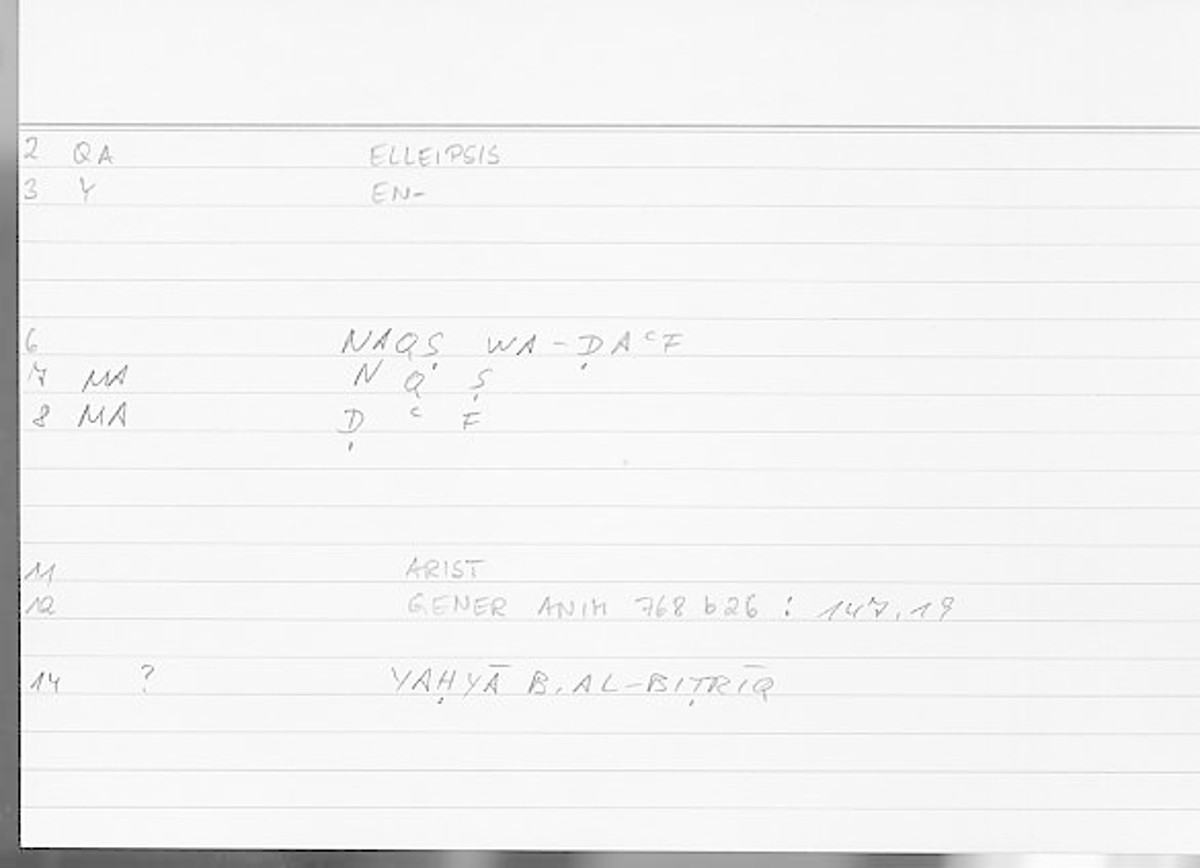 2 QA ELLEIPSIS
3 Y EN-
6 NAQṢ WA-ḌAᶜF
7 MA N Q Ṣ
8 MA Ḍ ᶜ F
11 ARIST
12 GENER ANIM 768 b26 : 147.19
14 ? YAḤYĀ B. AL-BIṬRĪQ